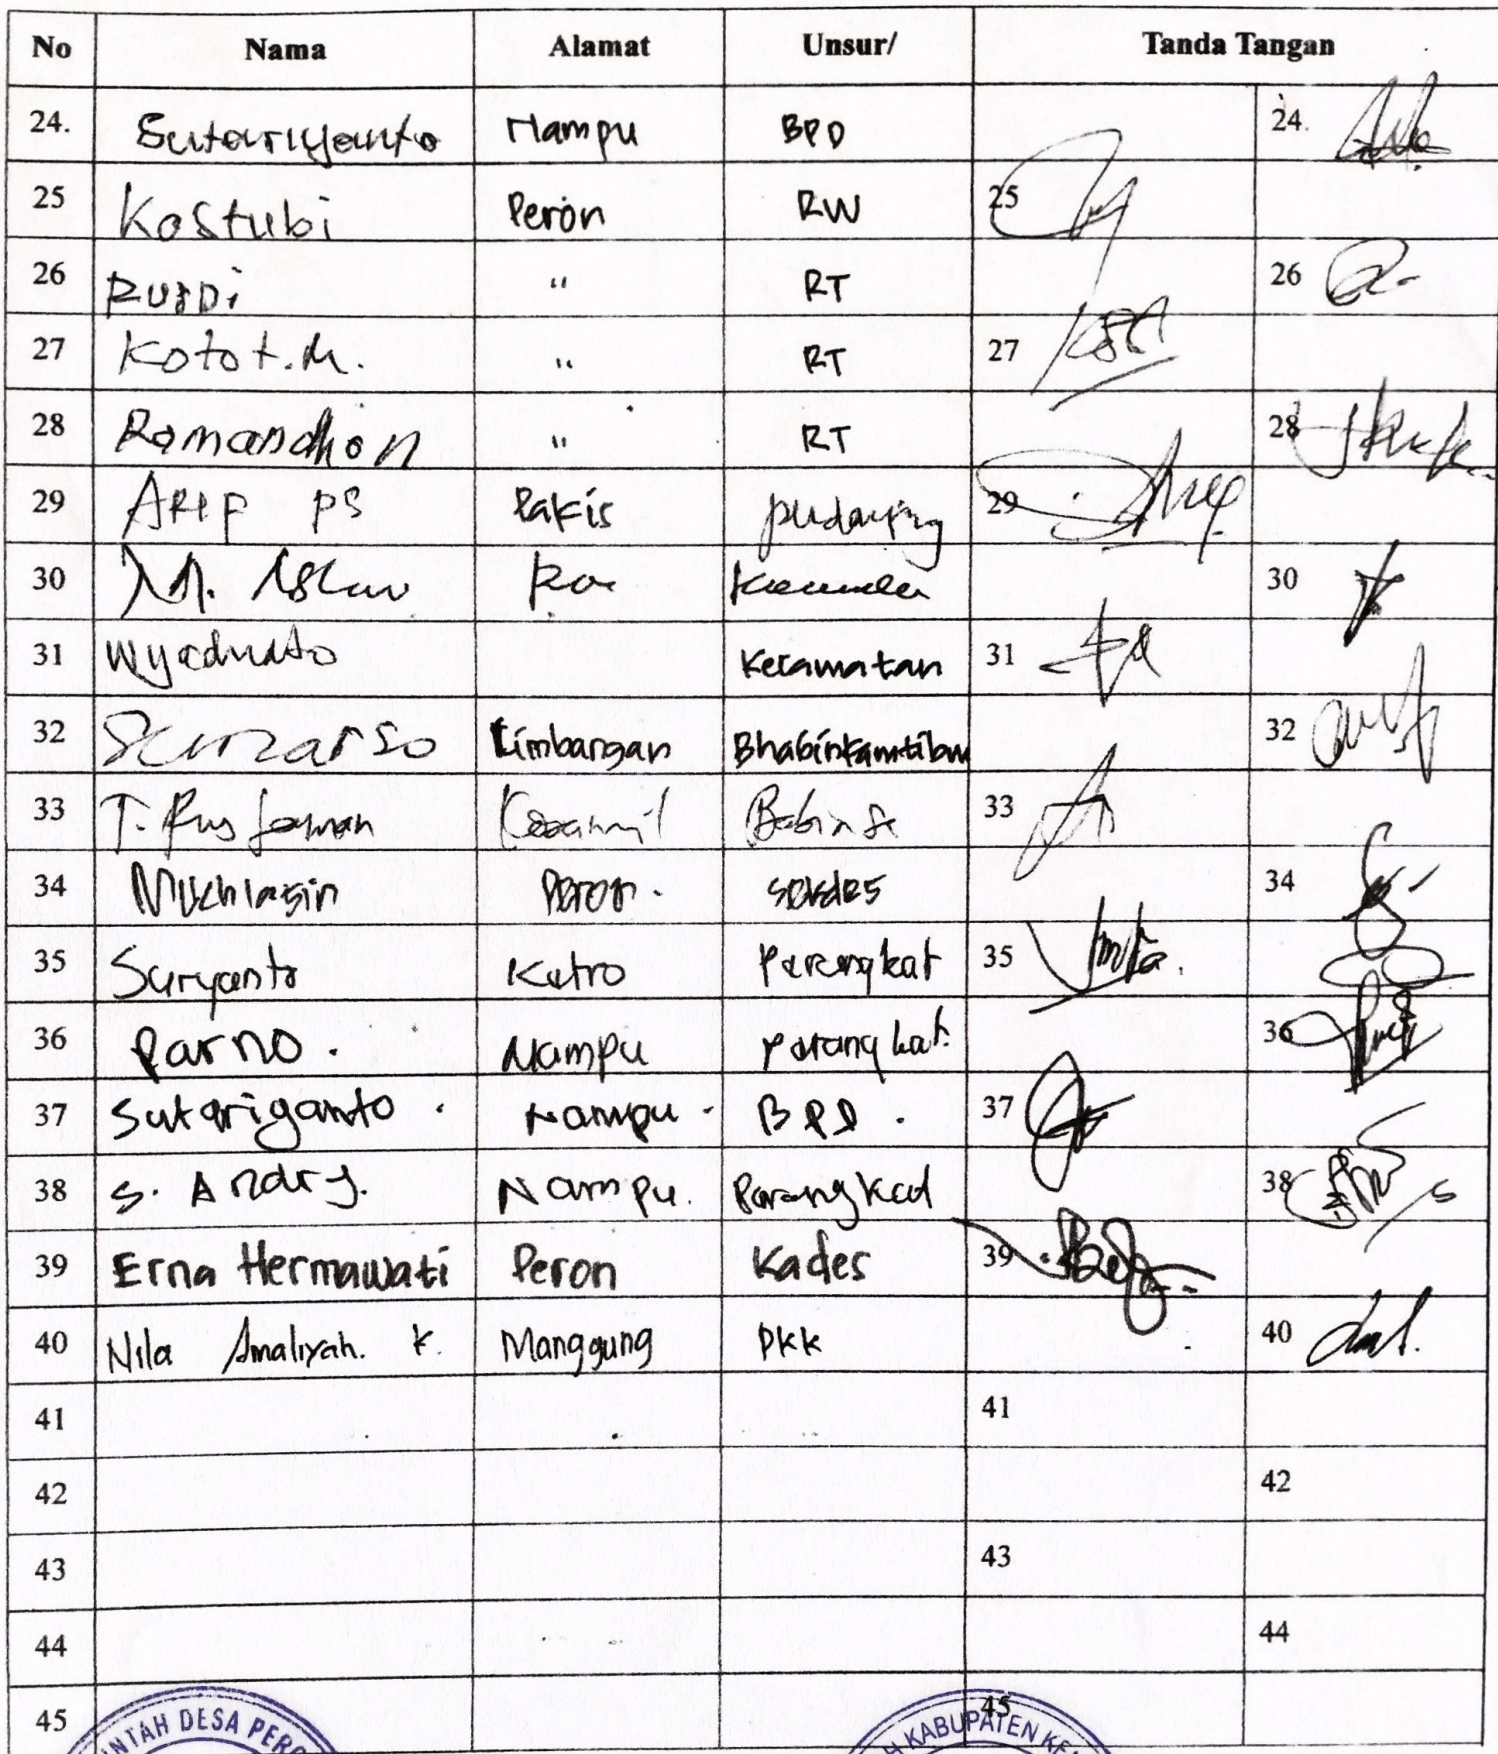 No Nama Alamat Unsur/ Tanda Tangan
24. Sutariyanto Nampu BPD 24.
25 Kostubi Peron RW 25
26 RUSDi " RT 26
27 Kotot.M. " RT 27
28 Romandhon " RT 28
29 ARIF PS Pakis 29
30 M. 30
31 Kecamatan 31
32 Limbangan Bhabinkamtibm 32
33 T. Babinsa 33
34 Mukhlasin Peron. sekdes 34
35 Suryanto Kutro Perangkat 35
36 Parno. Nampu Perangkat. 36
37 Sutariyanto. Nampu. BPD. 37
38 S. Andry. Nampu. Perangkat 38
39 Erna Hermawati Peron Kades 39
40 Nila Amaliyah. K. Manggung PKK 40
41 41
42 42
43 43
44 44
45 45
NTAH DESA PERO
H KABUPATEN KE